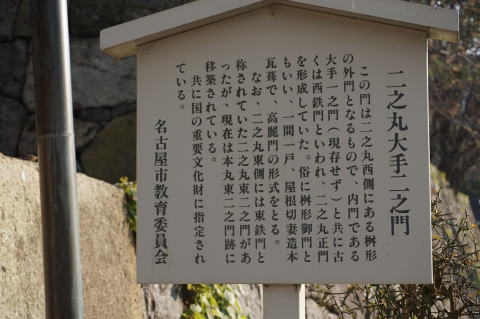 二之丸大手二之門
この門は二之丸西側にある桝形
の外門となるもので、内門である
大手一之門（現存せず）と共に古
くは西鉄門といわれ、二之丸正門
を形成していた。俗に桝形御門と
もいい、一間一戸、屋根切妻造本
瓦葺で、高麗門の形式をとる。
なお、二之丸東側には東鉄門と
称されていた二之丸東二之門があ
ったが、現在は本丸東二之門跡に
移築されている。
共に国の重要文化財に指定され
ている。
名古屋市教育委員会